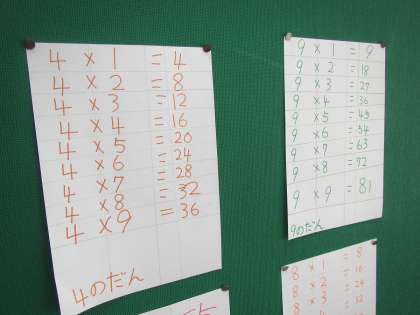 4 × 1 = 4
4 × 2 = 8
4 × 3 = 12
4 × 4 = 16
4 × 5 = 20
4 × 6 = 24
4 × 7 = 28
4 × 8 = 32
4 × 9 = 36
4のだん
9 × 1 = 9
9 × 2 = 18
9 × 3 = 27
9 × 4 = 36
9 × 5 = 45
9 × 6 = 54
9 × 7 = 63
9 × 8 = 72
9 × 9 = 81
9のだん
8 × 1 = 8
8 × 2 = 16
8 × 3 = 24
8 × = 32